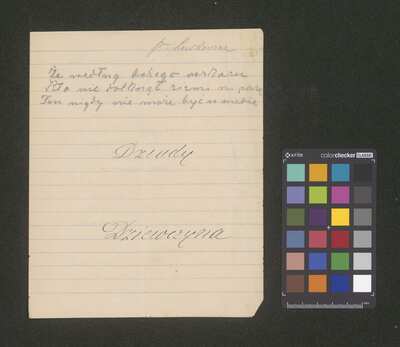 Że według bożego rozkazu
Kto nie dotknął ziemi ni razu
Ten nigdy nie może być w niebie
Dziady
Dziewczyna
x-rite
colorchecker CLASSIC